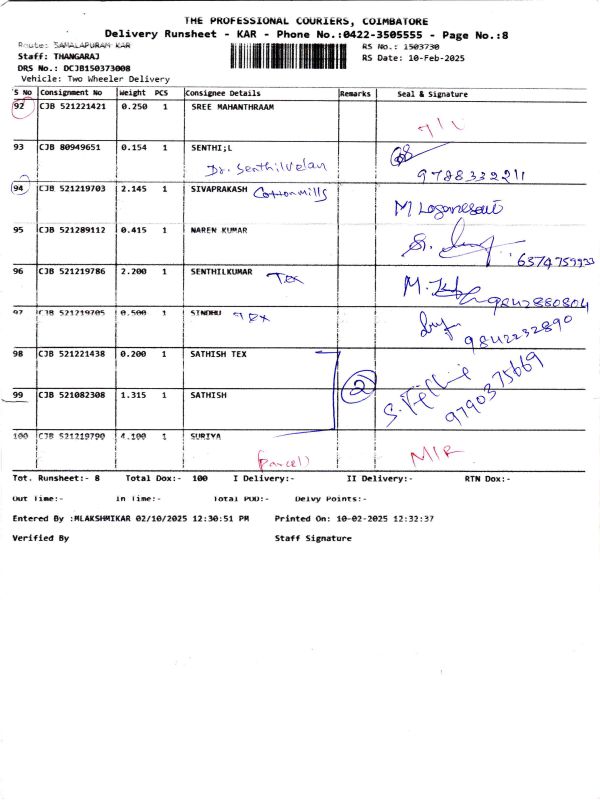 THE PROFESSIONAL COURIERS, COIMBATORE
Delivery Runsheet - KAR - Phone No.:0422-3505555 - Page No.:8
Route: SAMALAPURAM KAR RS No.: 1503730
Staff: THANGARAJ RS Date: 10-Feb-2025
DRS No.: DCJB150373008
Vehicle: Two Wheeler Delivery
S No Consignment No Weight PCS Consignee Details Remarks Seal & Signature
92 CJB 521221421 0.250 1 SREE MAHANTHRAAM
93 CJB 80949651 0.154 1 SENTHI;L
Dr. Senthilvelan 9788332211
94 CJB 521219703 2.145 1 SIVAPRAKASH Cotton mills
M
95 CJB 521289112 0.415 1 NAREN KUMAR
6374759933
96 CJB 521219786 2.200 1 SENTHILKUMAR Tex
M. 9842880804
97 CJB 521219705 0.500 1 SINDHU Tex
9842232890
98 CJB 521221438 0.200 1 SATHISH TEX
2 9790375669
99 CJB 521082308 1.315 1 SATHISH
100 CJB 521219790 4.100 1 SURIYA
(Parcel) MIR
Tot. Runsheet:- 8 Total Dox:- 100 I Delivery:- II Delivery:- RTN Dox:-
Out Time:- In Time:- Total POD:- Delvy Points:-
Entered By :MLAKSHMIKAR 02/10/2025 12:30:51 PM Printed On: 10-02-2025 12:32:37
Verified By Staff Signature